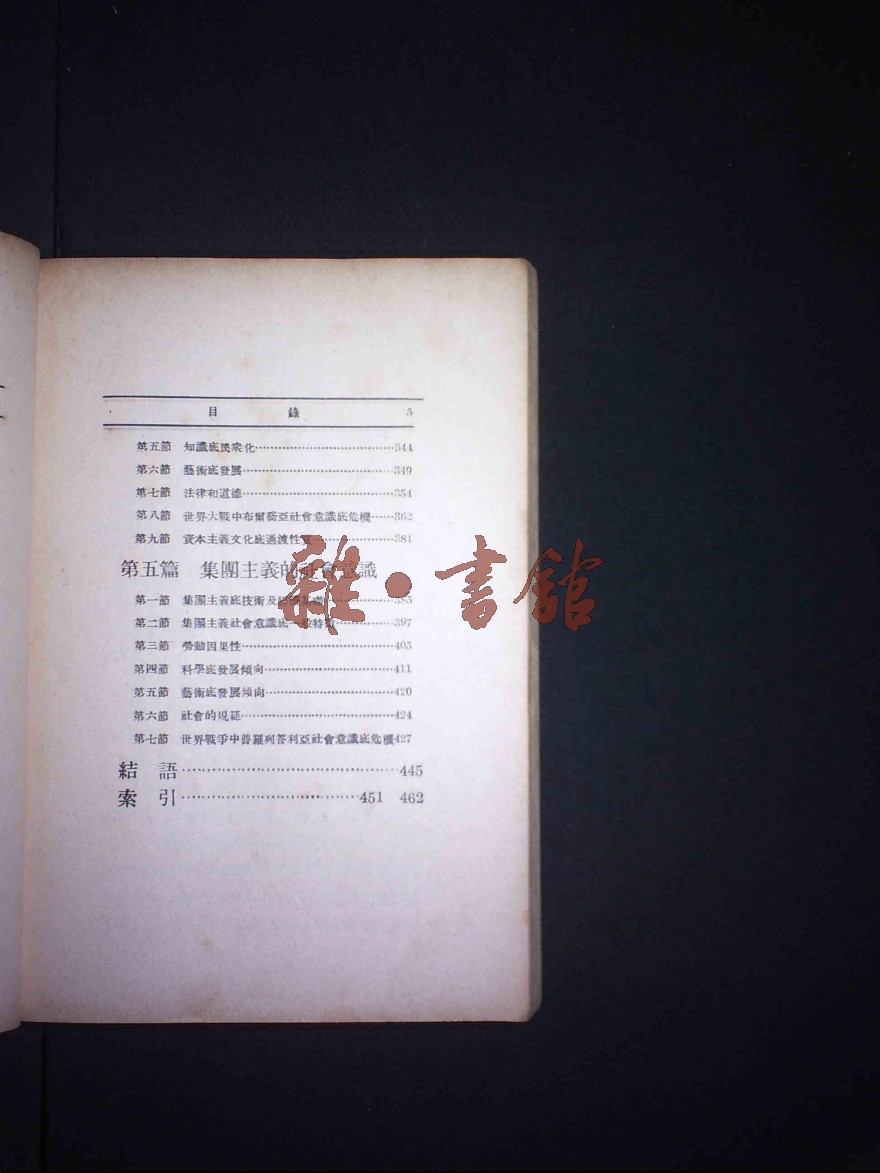 目 錄 5
第五節 知識底民衆化⋯⋯⋯⋯⋯⋯344
第六節 藝術底發展⋯⋯⋯⋯⋯⋯349
第七節 法律和道德⋯⋯⋯⋯⋯⋯354
第八節 世界大戰中布爾喬亞社會意識底危機⋯⋯362
第九節 資本主義文化底過渡性質⋯⋯⋯⋯381
第五篇 集團主義的社會意識
第一節 集團主義底技術及經濟基礎⋯⋯⋯⋯385
第二節 集團主義社會意識底一般特質⋯⋯⋯⋯397
第三節 勞動因果性⋯⋯⋯⋯⋯⋯405
第四節 科學底發展傾向⋯⋯⋯⋯⋯⋯411
第五節 藝術底發展傾向⋯⋯⋯⋯⋯⋯420
第六節 社會的規範⋯⋯⋯⋯⋯⋯424
第七節 世界戰爭中普羅列答利亞社會意識底危機427
結 語⋯⋯⋯⋯⋯⋯445
索 引⋯⋯⋯⋯⋯⋯451 462
雜·書館